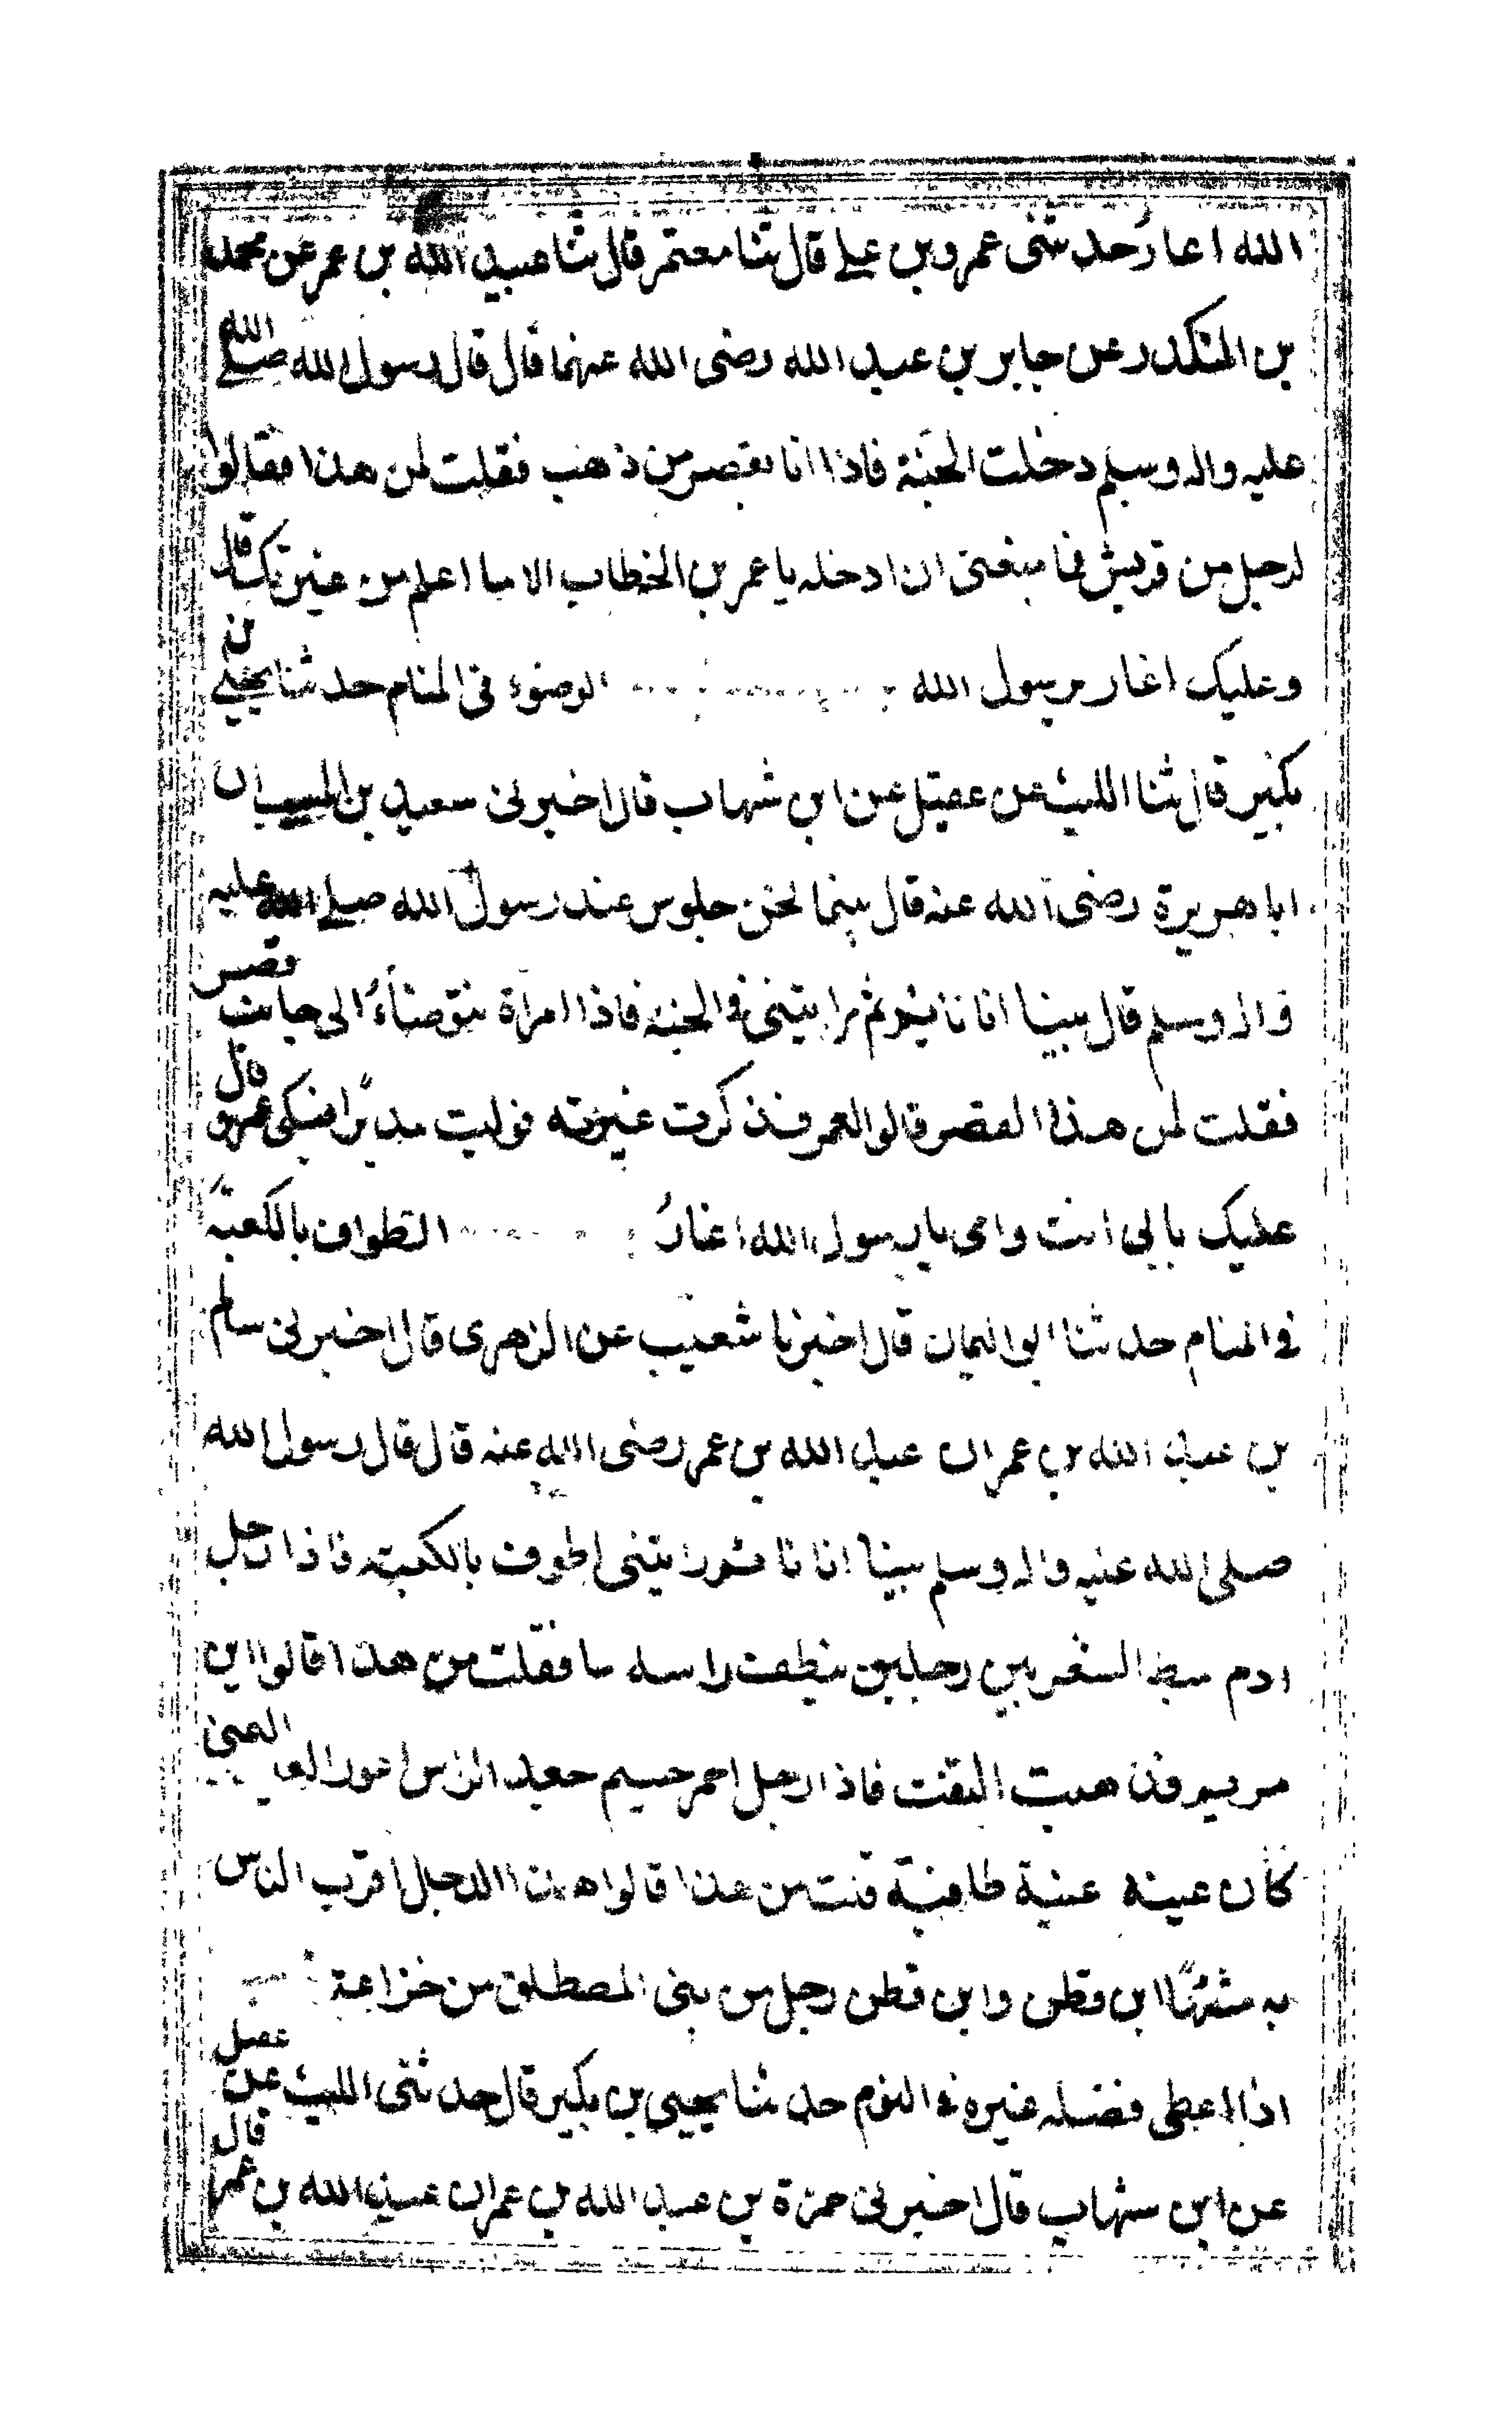 الله اغار حدثنى عمرو بن على قال ثنا معتمر قال ثنا عبيد الله بن عمر عن محمد
بن المنكدر عن جابر بن عبد الله رضى الله عنهما قال قال رسول الله صلى الله
عليه واله وسلم دخلت الجنة فاذا انا بقصر من ذهب فقلت لمن هذا فقالوا
لرجل من قريش فما منعنى ان ادخله يا عمر بن الخطاب الا ما اعلم من غيرتك قال
وعليك اغار يرسول الله الوضوء فى المنام حدثنا يحيى بن
بكير قال ثنا الليث عن عقيل عن ابن شهاب قال اخبرنى سعيد بن المسيب ان
ابا هريرة رضى الله عنه قال بينما نحن جلوس عند رسول الله صلى الله عليه
واله وسلم قال بينا انا نايم رايتنى فى الجنة فاذا امراة تتوضاء الى جانب قصر
فقلت لمن هذا القصر قالوا لعمر فذكرت غيرته فوليت مدبرا فبكى عمر وقال
عليك بابى انت وامى يا رسول الله اغار الطواف بالكعبة
فى المنام حدثنا ابو اليمان قال اخبرنا شعيب عن الزهرى قال اخبرنى سالم
بن عبد الله بن عمر ان عبد الله بن عمر رضى الله عنه قال قال رسول الله
صلى الله عليه واله وسلم بينا انا نايم رايتنى اطوف بالكعبة فاذا رجل
ادم سبط الشعر بين رجلين ينطف راسه ما فقلت من هذا قالوا ابن
مريم فذهبت التفت فاذا رجل احمر جسيم جعد الراس اعور العين
كان عينه عنبة طافية قلت من هذا قالوا هذا الدجال اقرب الناس
به شبها ابن قطن وابن قطن رجل من بنى المصطلق من خزاعة
اذا اعطى فضله غيره فى النوم حدثنا يحيى بن بكير قال حدثنى الليث عن عقيل
عن ابن شهاب قال اخبرنى حمزة بن عبد الله بن عمر ان عبد الله بن عمر قال